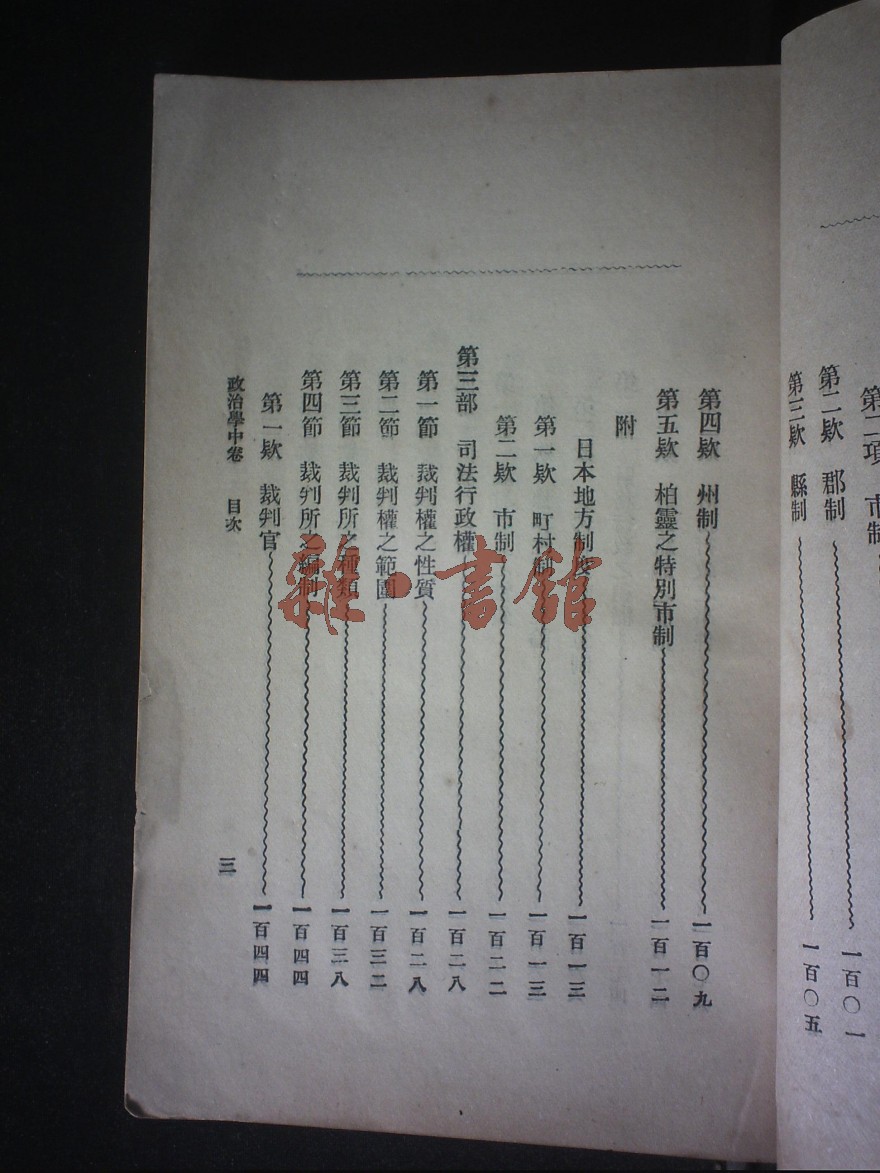 第二項　市制
第二欵　郡制 一百〇一
第三欵　縣制 一百〇五
第四欵　州制 一百〇九
第五欵　柏靈之特別市制 一百一二
附
日本地方制度 一百一三
第一欵　町村制 一百一三
第二欵　市制 一百二二
第三部　司法行政權 一百二八
第一節　裁判權之性質 一百二八
第二節　裁判權之範圍 一百三二
第三節　裁判所之種類 一百三八
第四節　裁判所之編制 一百四四
第一欵　裁判官 一百四四
政治學中卷　目次
三
雜·書館